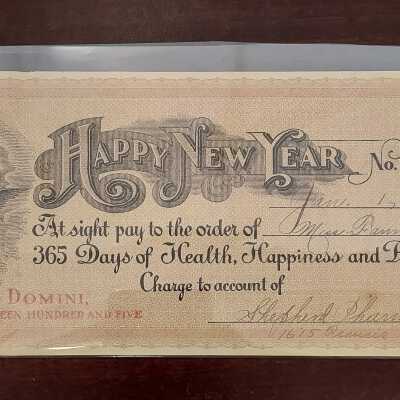 HAPPY NEW YEAR No.
Jan. 1
At sight pay to the order of Miss
365 Days of Health, Happiness and P
Charge to account of
DOMINI,
EEN HUNDRED AND FIVE
Shepherd
1615